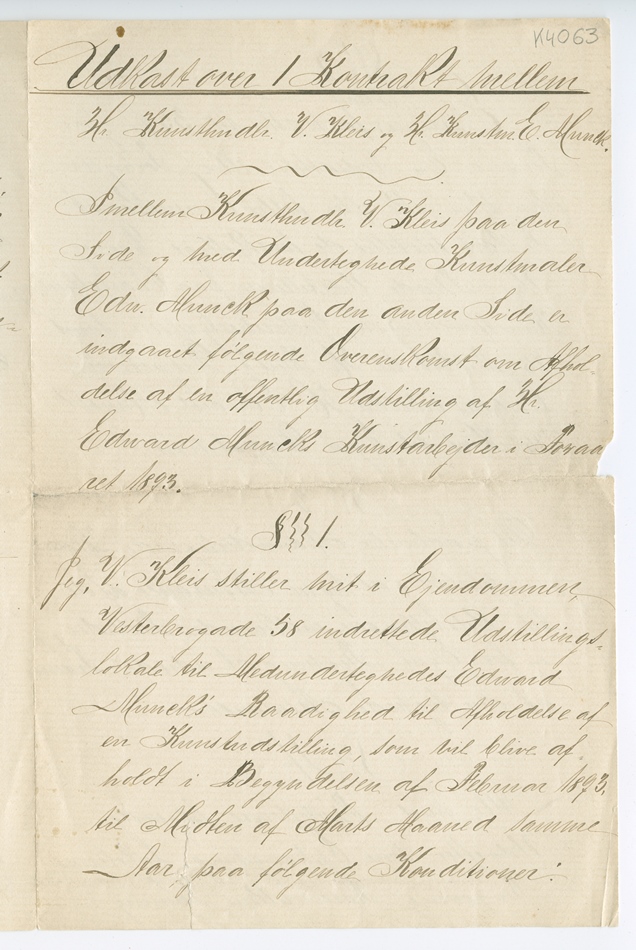 K4063
Udkast over 1 Kontrakt mellem
Hr. Kunsthndlr. V. Kleis og Hr. Kunstm. E. Munck.
Imellem Kunsthndlr. V. Kleis paa den
Side og med Undertegnede Kunstmaler
Edw. Munck paa den anden Side er
indgaaet følgende Overenskomst om Afhol-
delse af en offentlig Udstilling af Hr.
Edward Muncks Kunstarbejder i Foraa
ret 1893.
§ 1.
Jeg, V. Kleis stiller mit i Ejendommen,
Vesterbrogade 58 indrettede Udstillings-
lokale til Medundertegnedes Edward
Munck's Raadighed til Afholdelse af
en Kunstudstilling, som vil blive af
holdt i Begyndelsen af Februar 1893.
til Midten af Marts Maaned samme
Aar, paa følgende Konditioner: